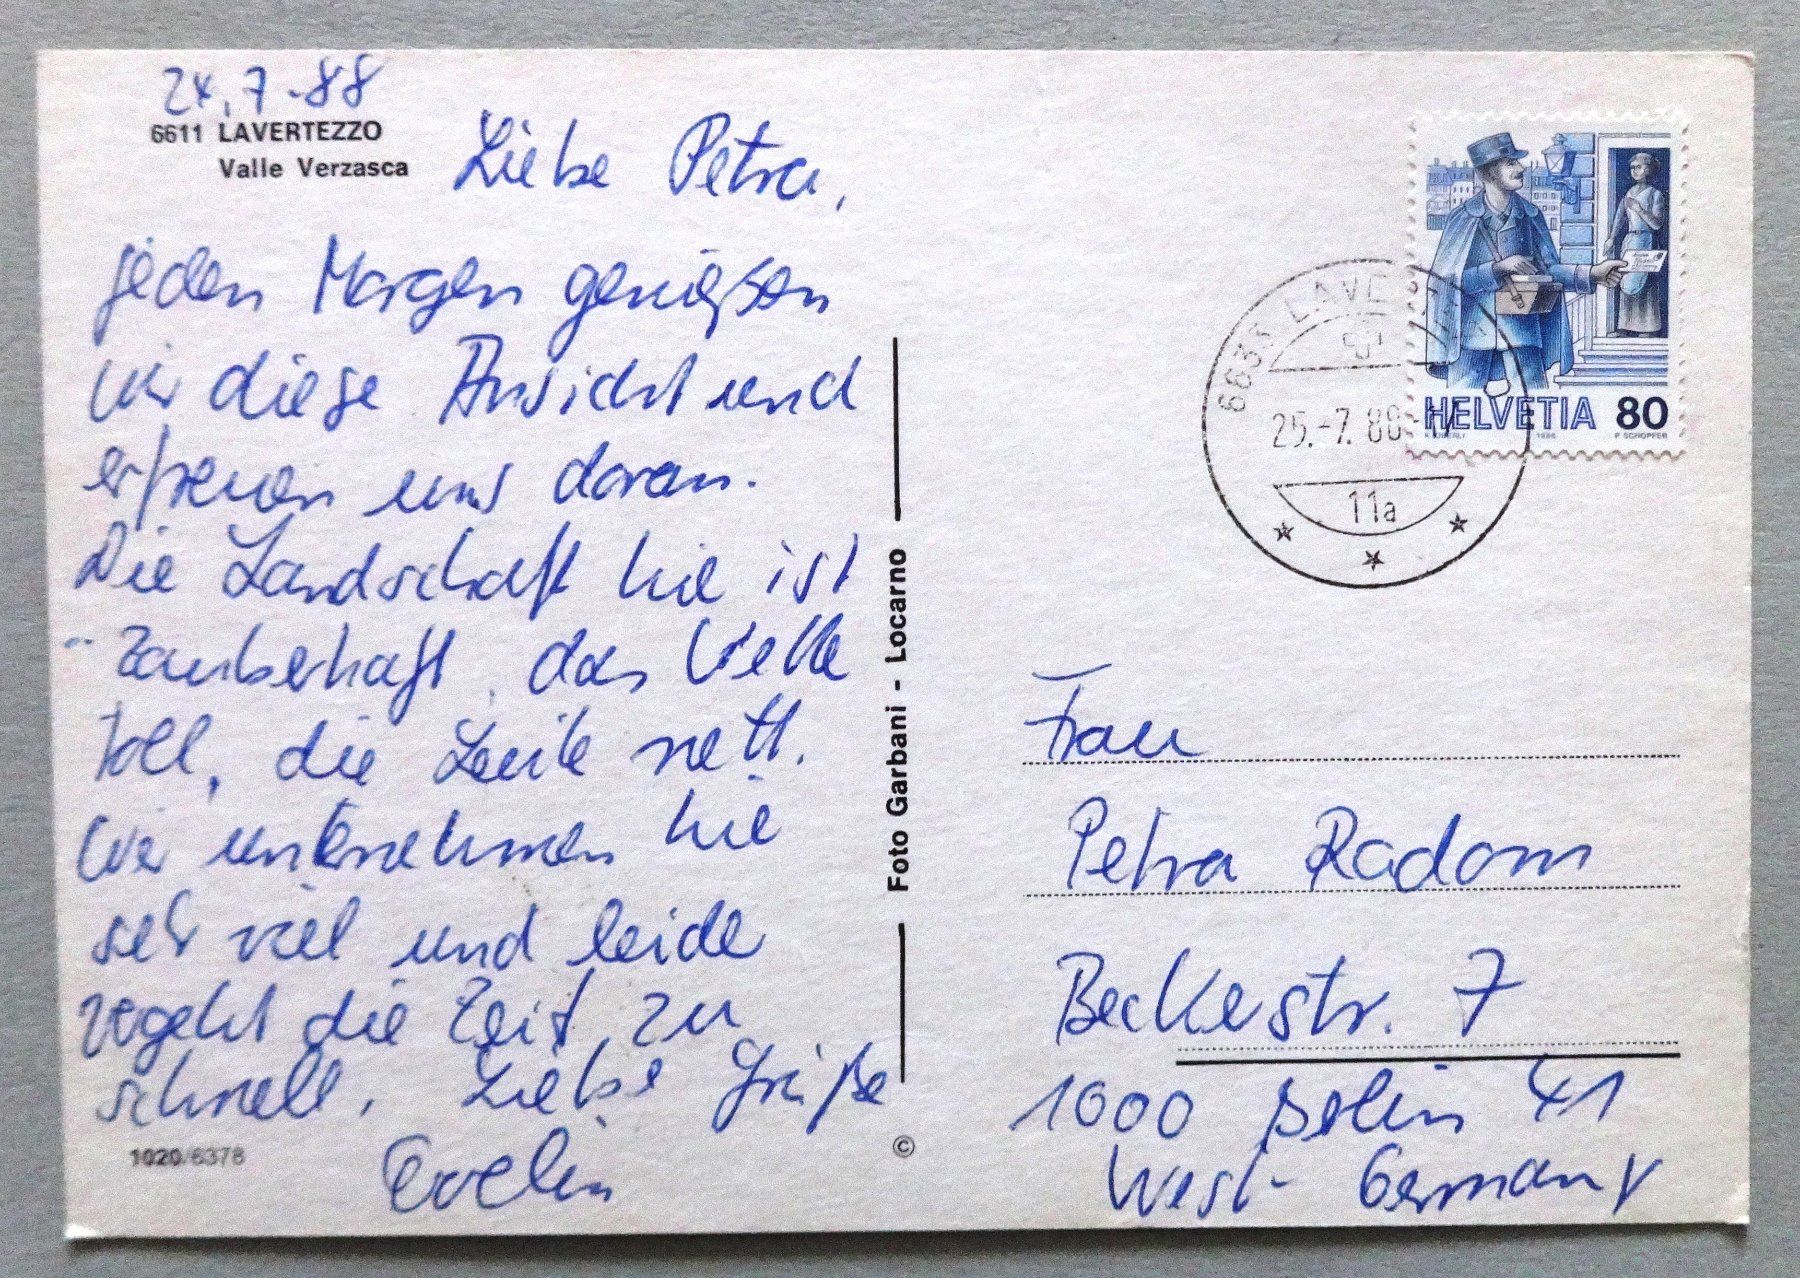 24.7.88
6611 LAVERTEZZO
Valle Verzasca
Liebe Petra,
jeden Morgen genießen
wir diese Ansicht und
erfreuen uns daran.
Die Landschaft hie ist
zauberhaft, das
toll, die Leute nett.
Wir unternehmen hie
sehr viel und leide
vegeht die Zeit zu
schnell. Liebe Grüße
Evelin
1020/6378
Foto Garbani - Locarno
©
HELVETIA 80
1986 P. SCHOPFER
6633 LAVERTEZZO
25.-7.88-17
11a
Frau
Petra Radom
Beckestr. 7
1000 Berlin 41
West-Germany